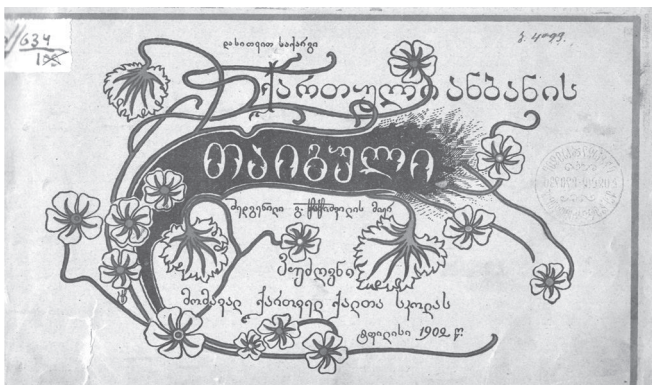 634
დასითვით საქარგი
ქართულ ანბანის
თაიგული
შედგენილი გ. მიერ
ვუძღვნი
მომავალ ქართველ ქალთა სკოლას
ტფილისი 1902 წ.